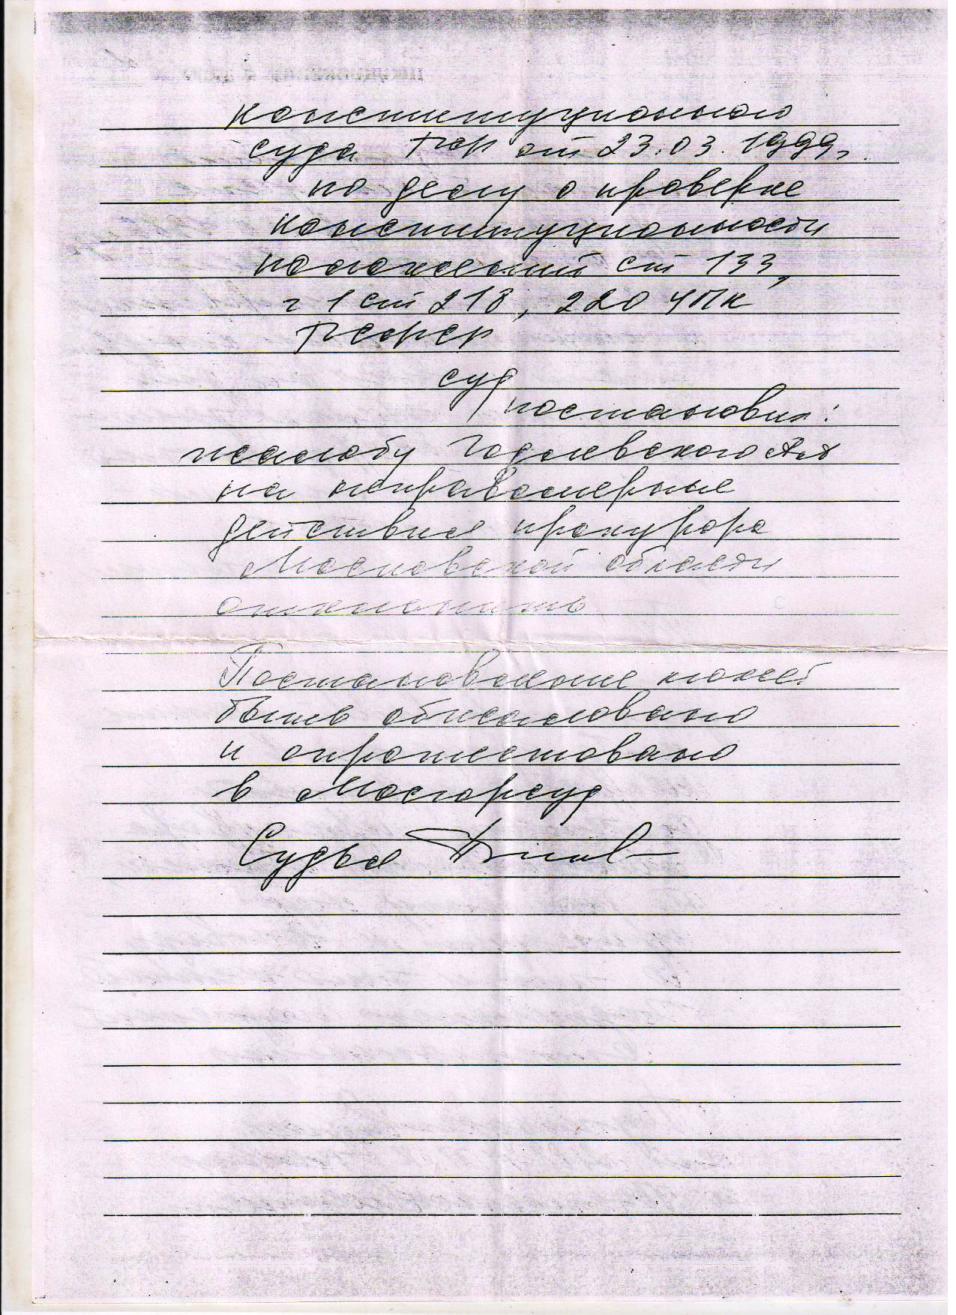 Конституционного
суда РФ от 23.03.1999г.
по делу о проверке
конституционности
положений ст 133,
ч 1 ст 218, 220 УПК
РСФСР
суд
постановил:
жалобу
на неправомерные
действия прокурора
Московской области
отклонить
Постановление может
быть обжаловано
и опротестовано
в Мосгорсуд
Судья